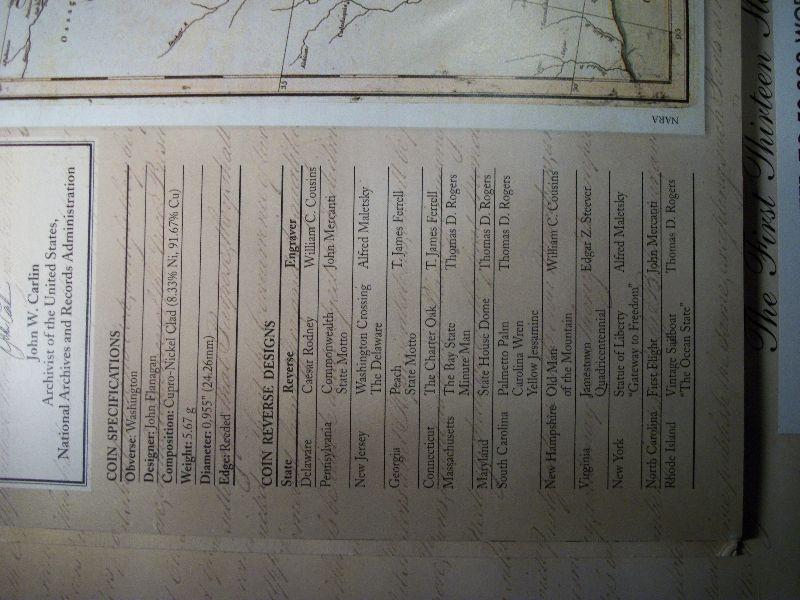 John W. Carlin
Archivist of the United States,
National Archives and Records Administration
COIN SPECIFICATIONS
Obverse: Washington
Designer: John Flanagan
Composition: Cupro-Nickel Clad (8.33% Ni, 91.67% Cu)
Weight: 5.67 g
Diameter: 0.955" (24.26mm)
Edge: Reeded
COIN REVERSE DESIGNS
State Reverse Engraver
Delaware Caesar Rodney William C. Cousins
Pennsylvania Commonwealth John Mercanti
State Motto
New Jersey Washington Crossing Alfred Maletsky
The Delaware
Georgia Peach T. James Ferrell
State Motto
Connecticut The Charter Oak T. James Ferrell
Massachusetts The Bay State Thomas D. Rogers
Minute Man
Maryland State House Dome Thomas D. Rogers
South Carolina Palmetto Palm Thomas D. Rogers
Carolina Wren
Yellow Jessamine
New Hampshire Old Man William C. Cousins
of the Mountain
Virginia Jamestown Edgar Z. Steever
Quadricentennial
New York Statue of Liberty Alfred Maletsky
"Gateway to Freedom"
North Carolina First Flight John Mercanti
Rhode Island Vintage Sailboat Thomas D. Rogers
"The Ocean State"
NARA
The First Thirteen